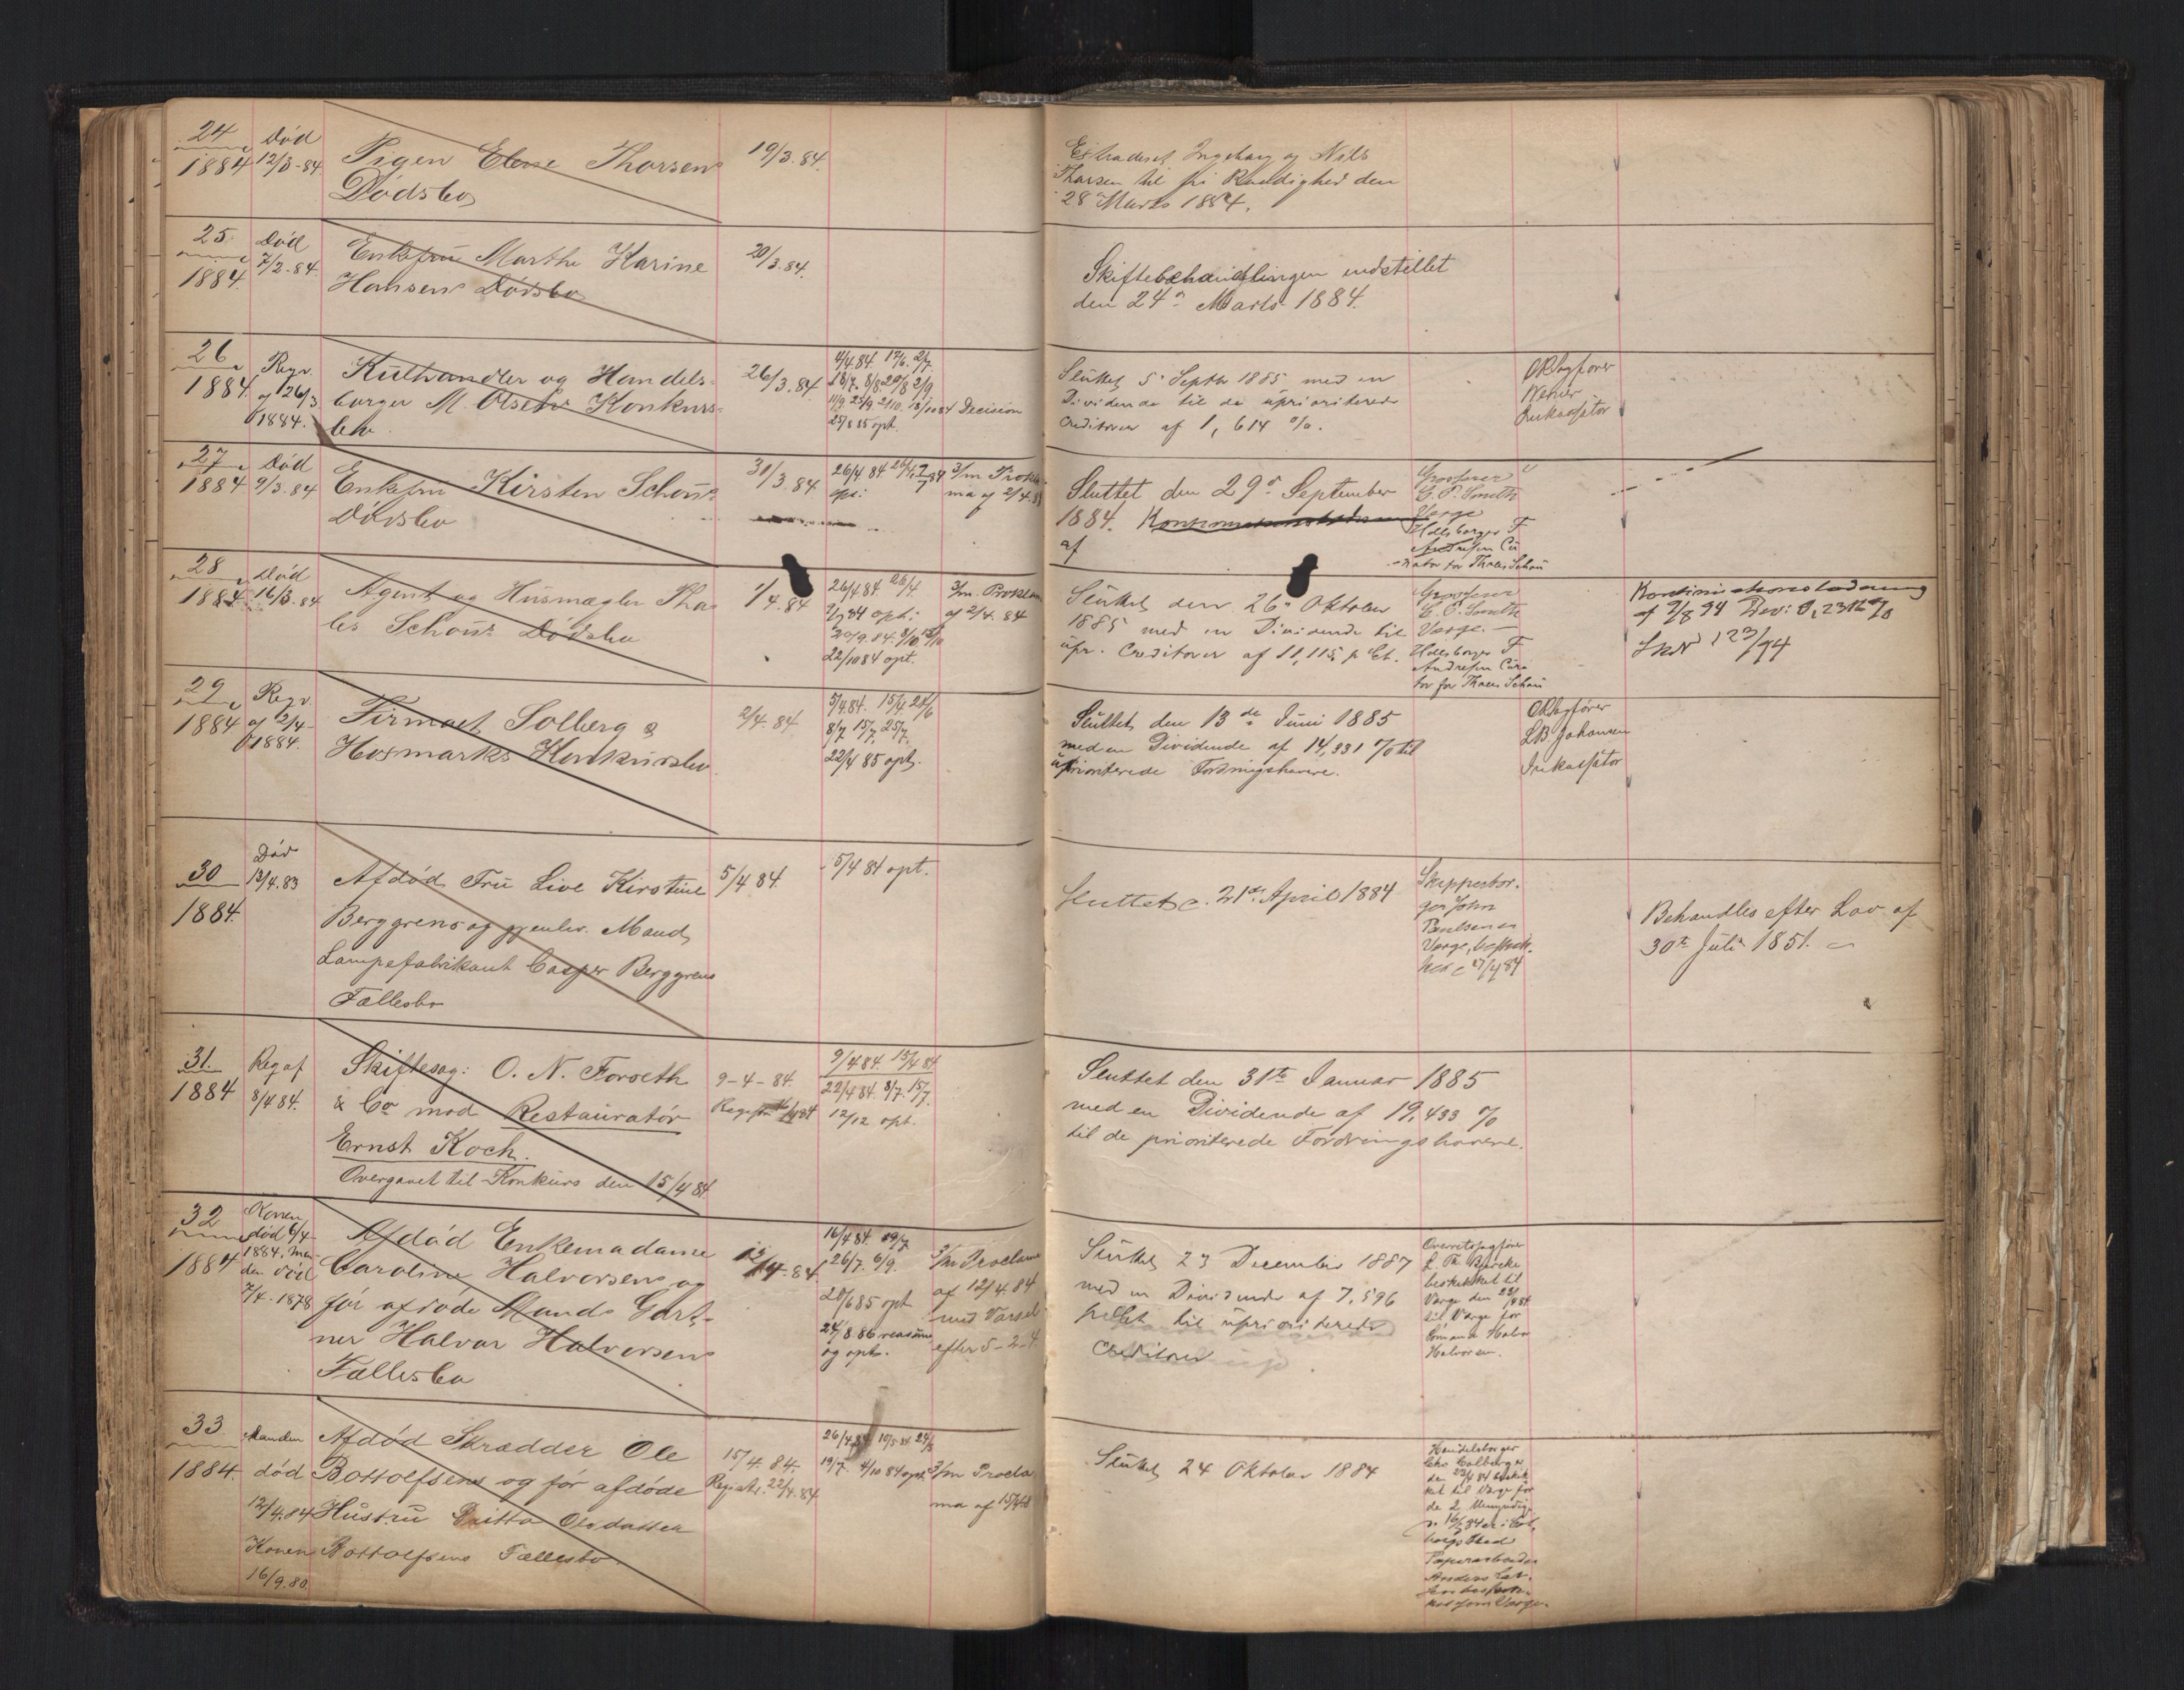 24
1884
Død
12/3-84
Pigen Elene Thorsens
Dødsbo
19/3.84.
Extraderet Ingeborg og Nils
Thorsen til fri Raadighed den
28 Marts 1884.
25
1884.
Død
7/2-84.
Enkefru Marthe Karine
Hansens Dødsbo
20/3.84.
Skiftebehandlingen indstillet
den 24de Marts 1884.
26
1884.
Reqv.
af 26/3
1884.
Kulhandler og Handels-
borger M. Olsens Konkurs-
bo
26/3.84
4/4 84 17/6. 2/7.
18/7. 8/8 20/8 2/9
11/9 25/9 2/10. 18/10 84
25/8 85 opt.
Decision
Sluttet 5 Septbr 1885 med en
Dividende til de uprioriterede
Creditorer af 1,614 %.
ORSagfører
Inkassator
27
1884
Død
9/3.84
Enkefru Kirsten Schous
Dødsbo
31/3.84.
26/4 84
3/m Prokla-
ma af 2/4.84
Sluttet den 29de September
1884.
af
Grosserer
C. P. Smith
Værge
Hdlsborger F
Andresen Cu-
rator for Thales Schou
28
1884
Død
16/3.84
Agent og Husmægler Tha-
les Schous Dødsbo
1/4.84
26/4 84 26/4
2/7 84 opt:
20/9.84. 8/10
22/10 84 opt.
3/m. Proklama
af 2/4.84
Sluttet den 26de Oktober
1885 med en Dividende til
upr. Creditorer af 11,115 p Ct.
Grosserer
C. P. Smith
Værge.
Hdlsborger F
Andresen Cura-
tor for Thales Schou
29
1884
Reqv.
af 2/4-
1884.
Firmaet Solberg &
Hosmarks Konkursbo
2/4.84
5/4 84. 15/4 24/6
8/7 15/7. 25/7.
22/4 85 opt.
Sluttet den 13de Juni 1885
med en Dividende af 14,331 % til
uprioriterede Fordringshavere.
ORSagfører
L.B. Johansen
Inkassator
30
1884.
Død
13/4.83
Afdød Fru Live Kirstine
Berggrens og gjenlev. Mand,
Lampefabrikant Casper Berggrens
Fællesbo
5/4 84.
5/4 84 opt.
Sluttet d. 21de April 1884
Skipperbor-
ger John
Værge, beskik-
Behandles efter Lov af
30te Juli 1851.
31.
1884
Req af
8/4 84.
Skiftesag: O. N. Forseth
& Co mod Restauratør
Ernst Koch.
Overgaaet til Konkurs den 15/4 84.
9-4-84.
9/4 84. 15/4 84
22/4 84. 8/7. 15/7.
12/12 opt.
Sluttet den 31te Januar 1885
med en Dividende af 19,433 %
til de prioriterede Fordringshavere.
32
1884
Konen
død 6/4-
1884, Man-
den død
7/4-1878
Afdød Enkemadame
Caroline Halvorsens og
før afdøde Mands Gart-
ner Halvor Halvorsens
Fællesbo
12/4-84
16/4 84. 19/7.
26/7. 6/9.
20/6 85 opt
24/8 86 reasume
og opt.
3/m Proclama
af 12/4.84
med Varsel
efter 5-2-4.
Sluttet 23 December 1887
med en Dividende af 7,596
pCt til uprioriterede
Creditorer
Overretssagfører
beskikket til
Værge den 22/4 84.
til Værge for
Halvorsen.
33.
1884.
Manden
død
12/4.84
Konen
16/9.80.
Afdød Skrædder Ole
Bottolfsens og før afdøde
Hustru Britta Olsdatter
Bottolfsens Fællesbo.
15/4.84.
Registr. 22/4.84
26/4.84 10/5 84 24/5
19/7. 4/10 84 opt.
3/m Procla-
ma af 15/4 84
Sluttet 24 Oktober 1884
Handelsborger
Chr Colberg
den 22/4 84 beskik-
ket til Værge for
de 2 Umyndige
Papirarbeider
Anders
ket som Værge.